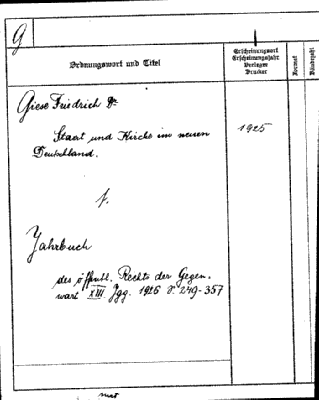 G
Ordnungswort und Titel
Erscheinungsort
Erscheinungsjahr
Verleger
Drucker
Format
Bändezahl
Giese Friedrich Dr.
Staat und Kirche im neuen
Deutschland.
1925
f.
Jahrbuch
des öffentl. Rechts der Gegen.
wart XIII Jgg. 1926 S. 249-357